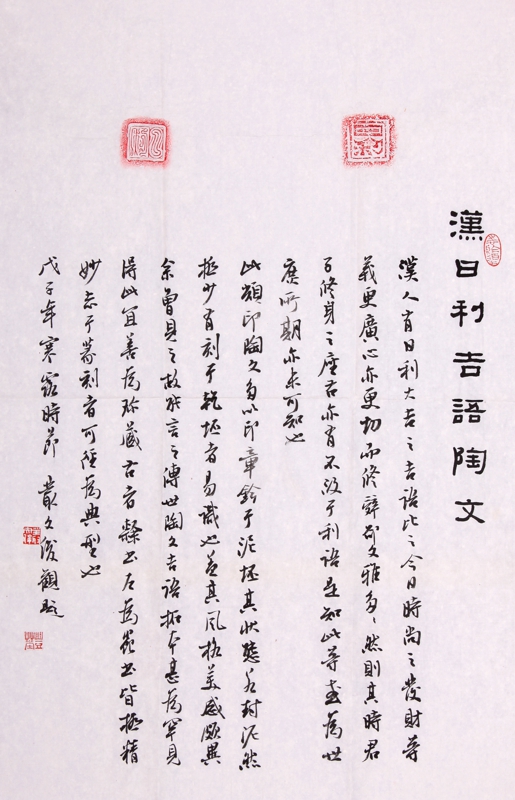 漢日利吉語陶文
漢人有日利大吉之吉語比之今日時尚之發財等
義更廣心亦更切而修辭則文雅多多然則其時君
子修身之座右亦有不沒于利語是知此等盡為世
廣所期亦未可知也
此類印陶文多以印章鈐于泥坯其狀態若封泥然
極少有刻于乾坯者易識也並其風格美感頗異
余曾見之故能言之傳世陶文吉語拓本甚為罕見
得此宜善為珍藏右者縣書左為篆書皆極精
妙志于篆刻者可經為典型也
戊子年寒露時節 叢文俊觀題